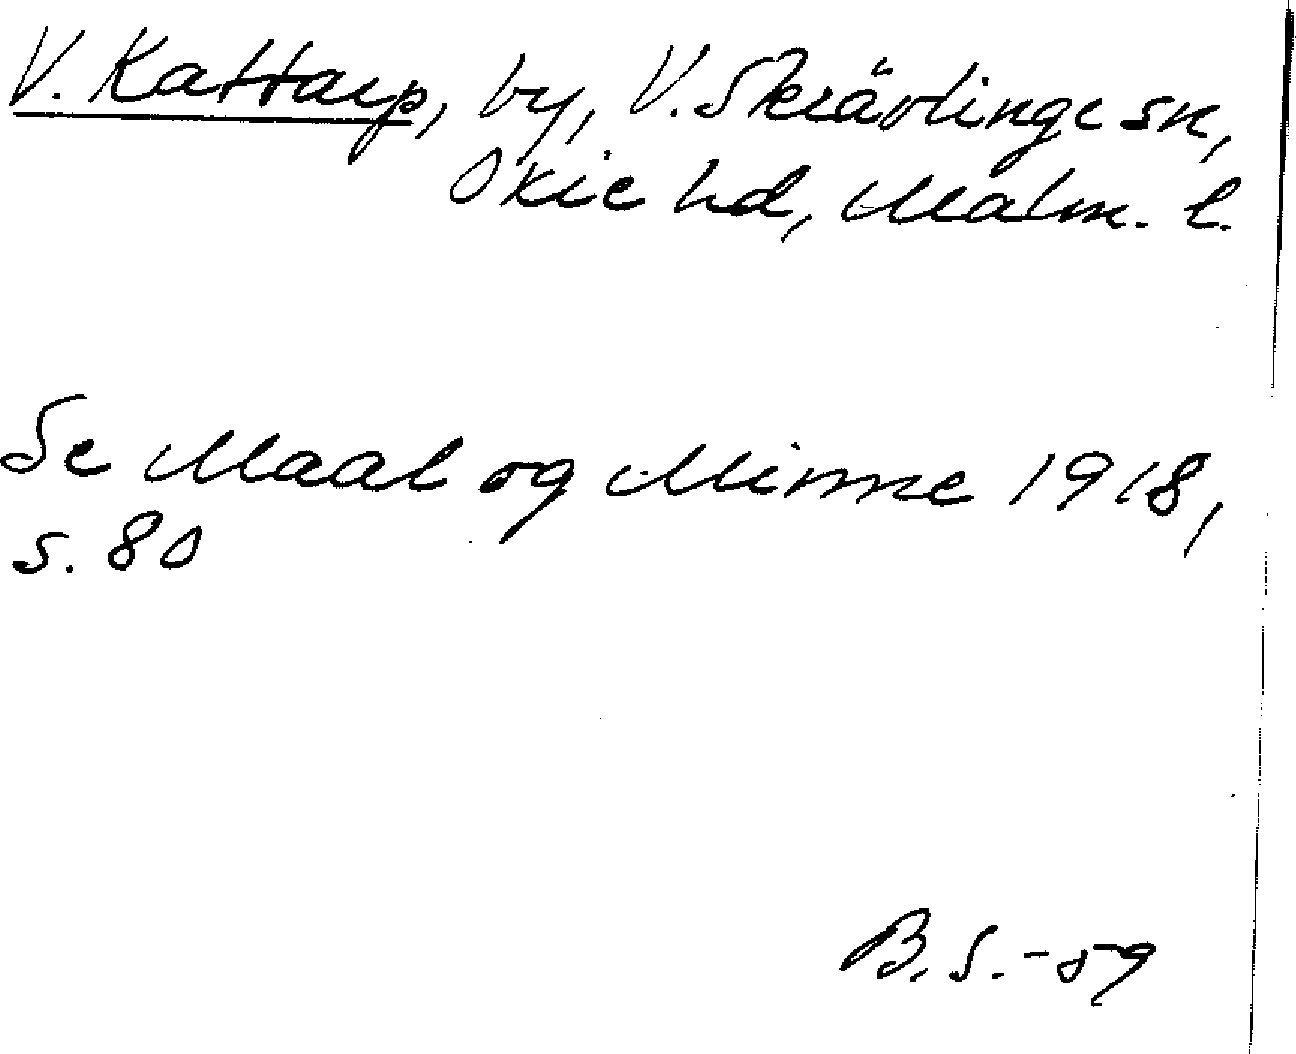 V. Kattarp, by, V. Skrävlinge sn,
Oxie hd, Malm. l.
Se Maal og Minne 1918,
s. 80
B. S. -59